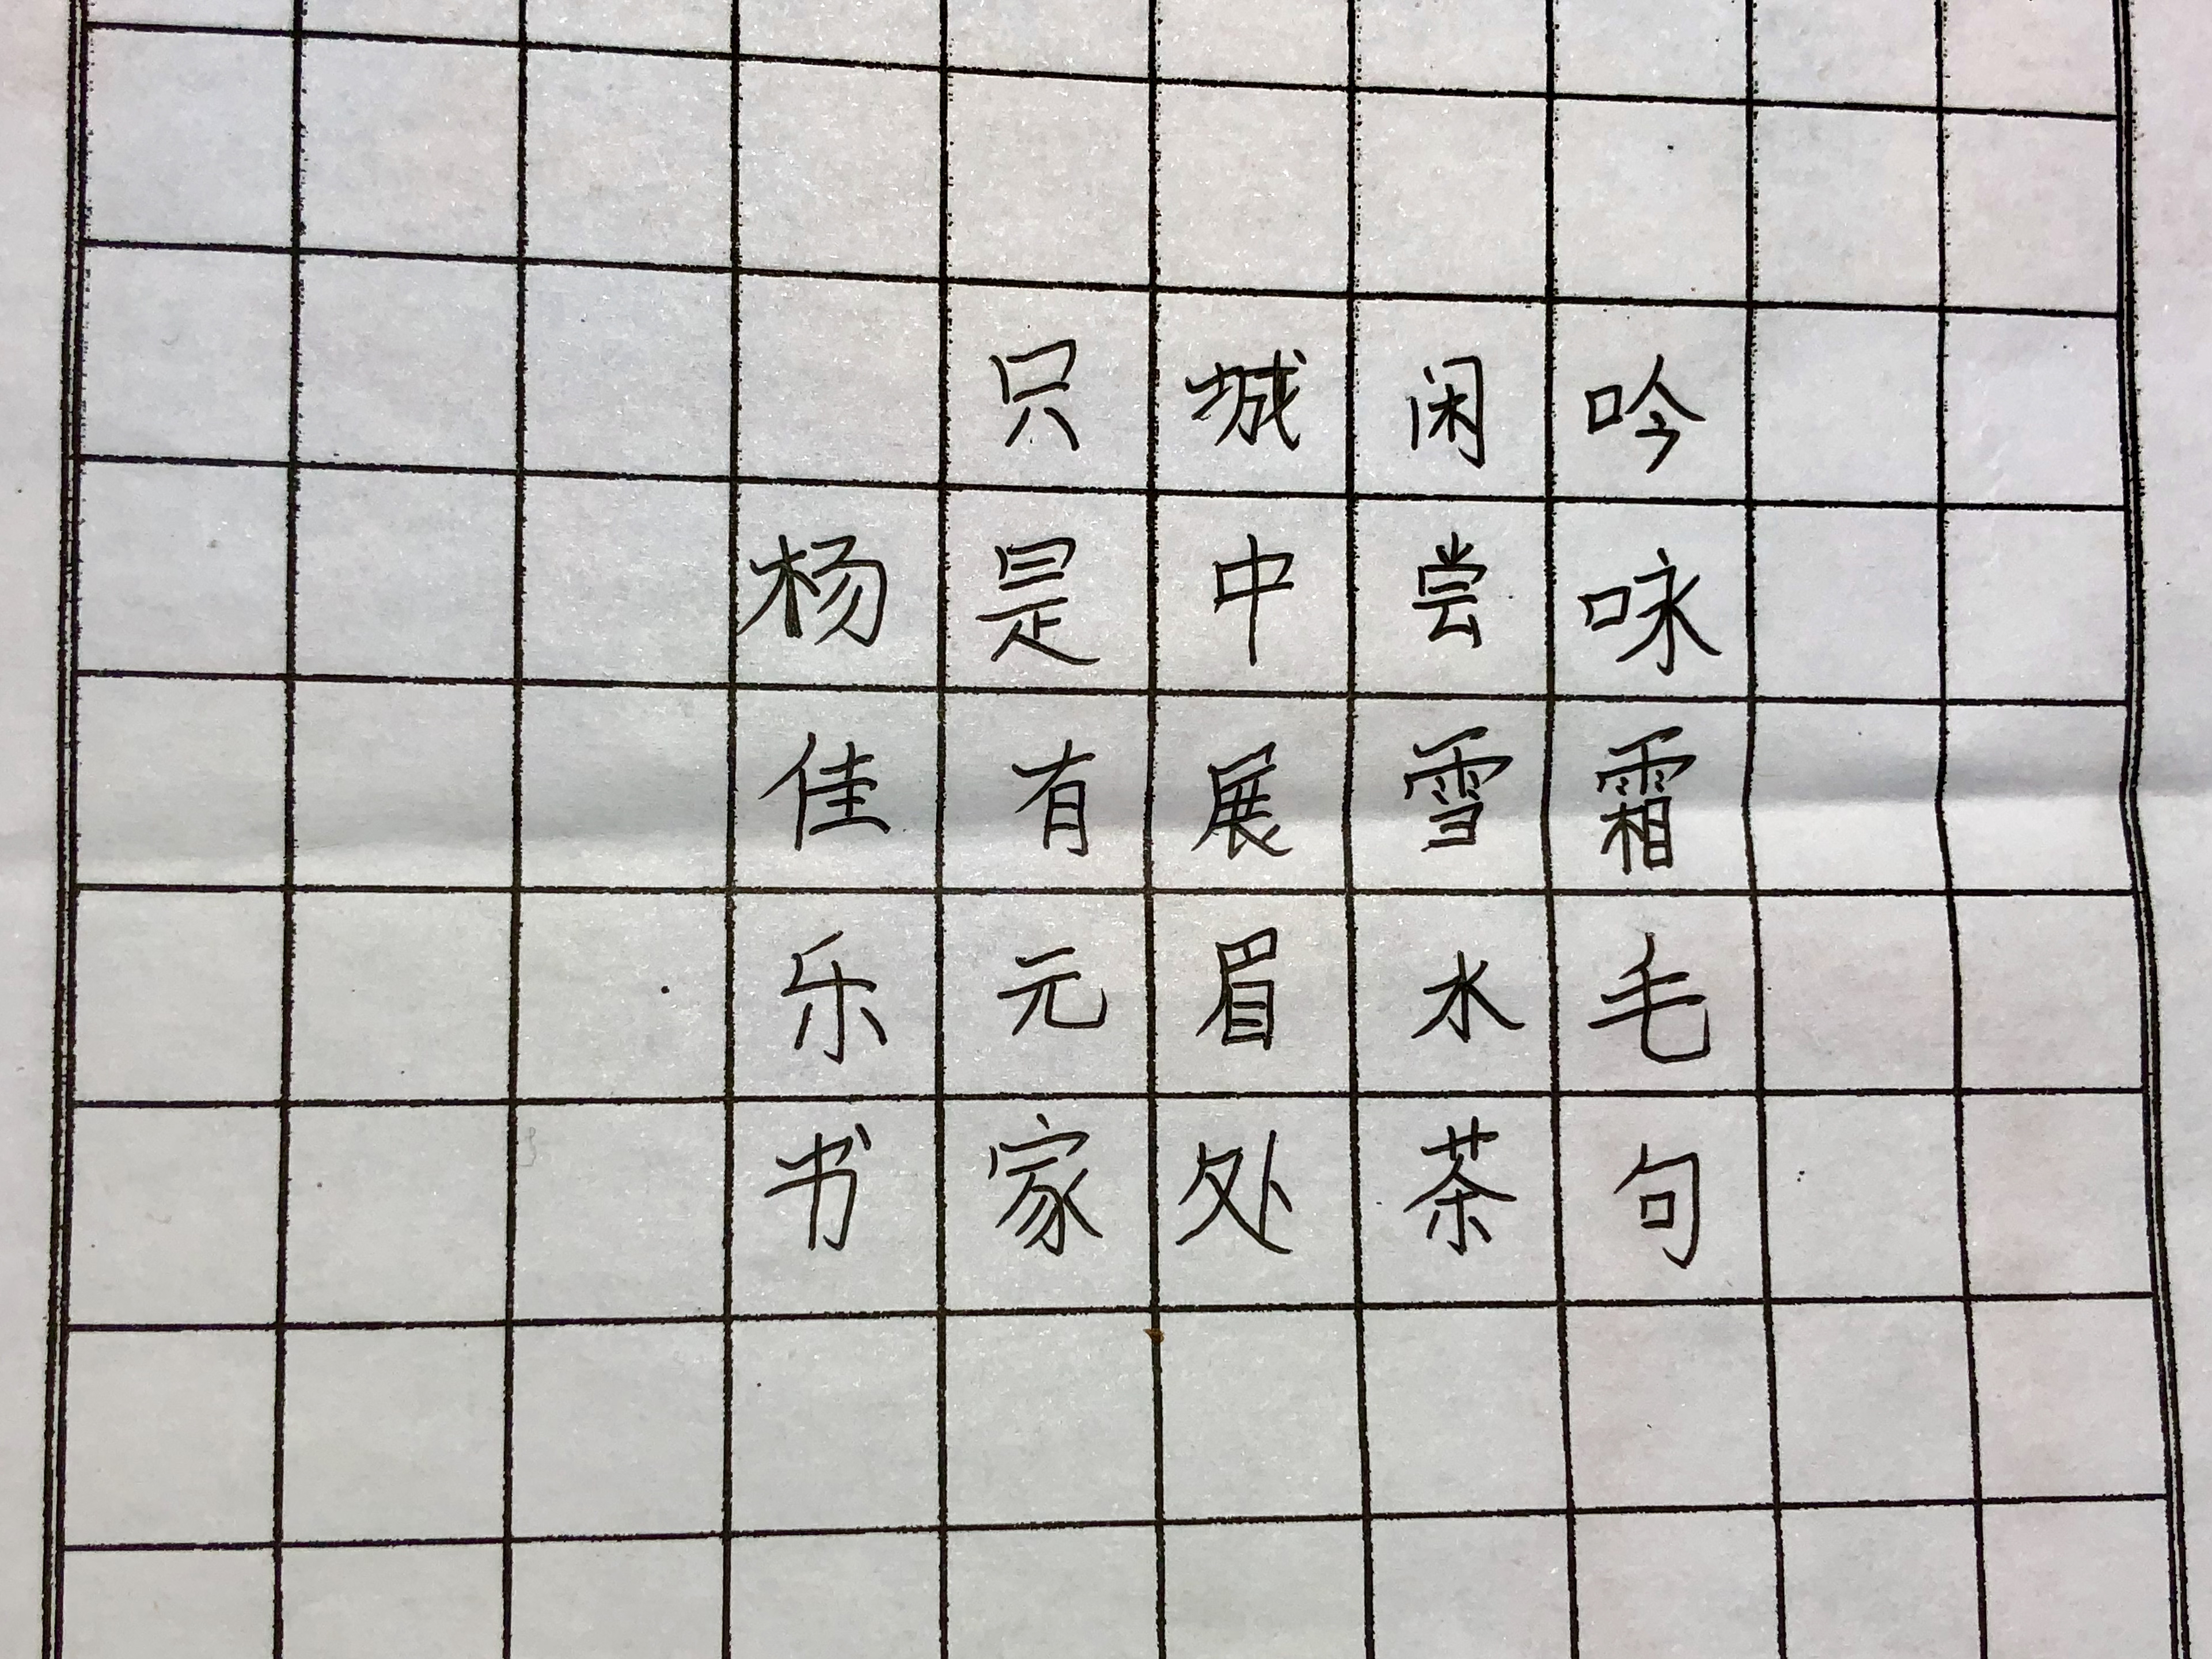 吟咏霜毛句
闲尝雪水茶
城中展眉处
只是有元家
杨佳乐书